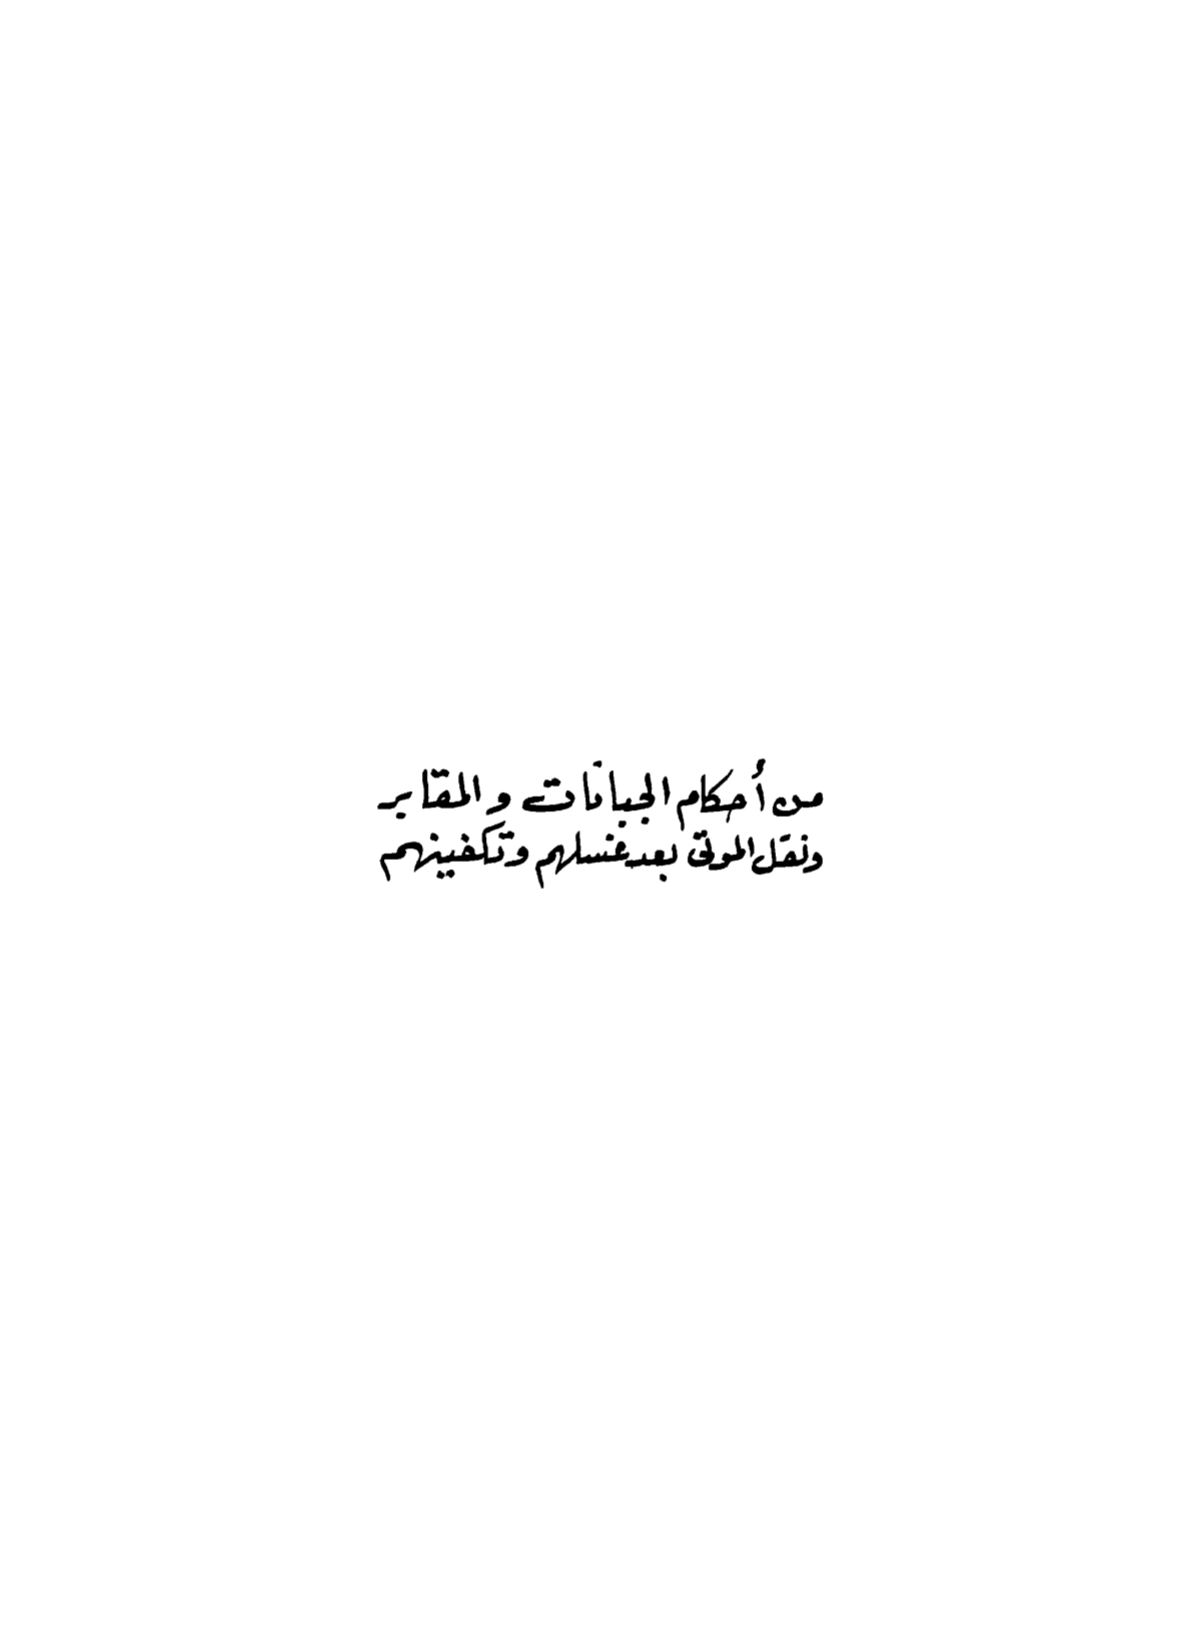 من أحكام الجبانات والمقابر
ونقل الموتى بعد غسلهم وتكفينهم